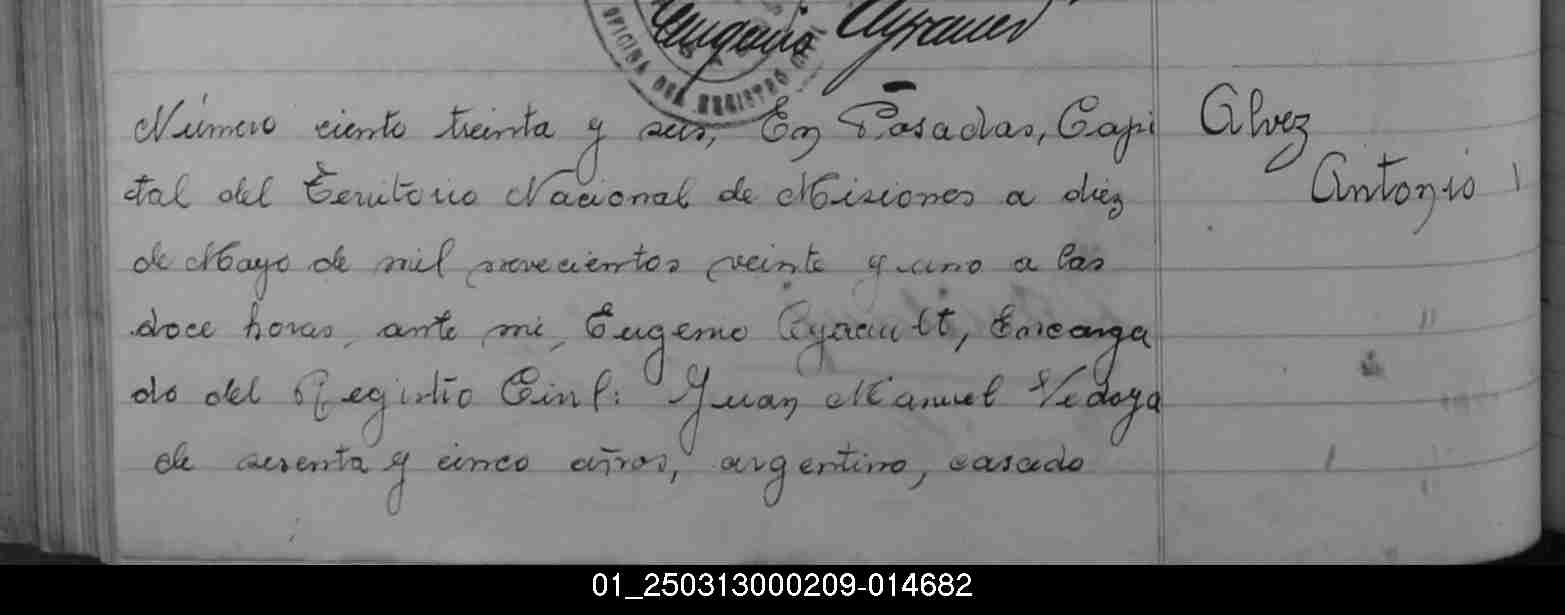 Eugenio Ayrault
OFICINA DEL REGISTRO
Número ciento treinta y seis, En Posadas, Capi
tal del Territorio Nacional de Misiones a diez
de Mayo de mil novecientos veinte y uno a las
doce horas, ante mi, Eugenio Ayrault, Encarga
do del Registro Civil: Juan Manuel Vedoya
de sesenta y cinco años, argentino, casado
Alvez
Antonio
01_250313000209-014682